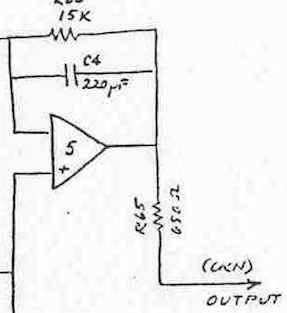 15K
C4
220pF
5
+
R65
650Ω
(GRN)
OUTPUT